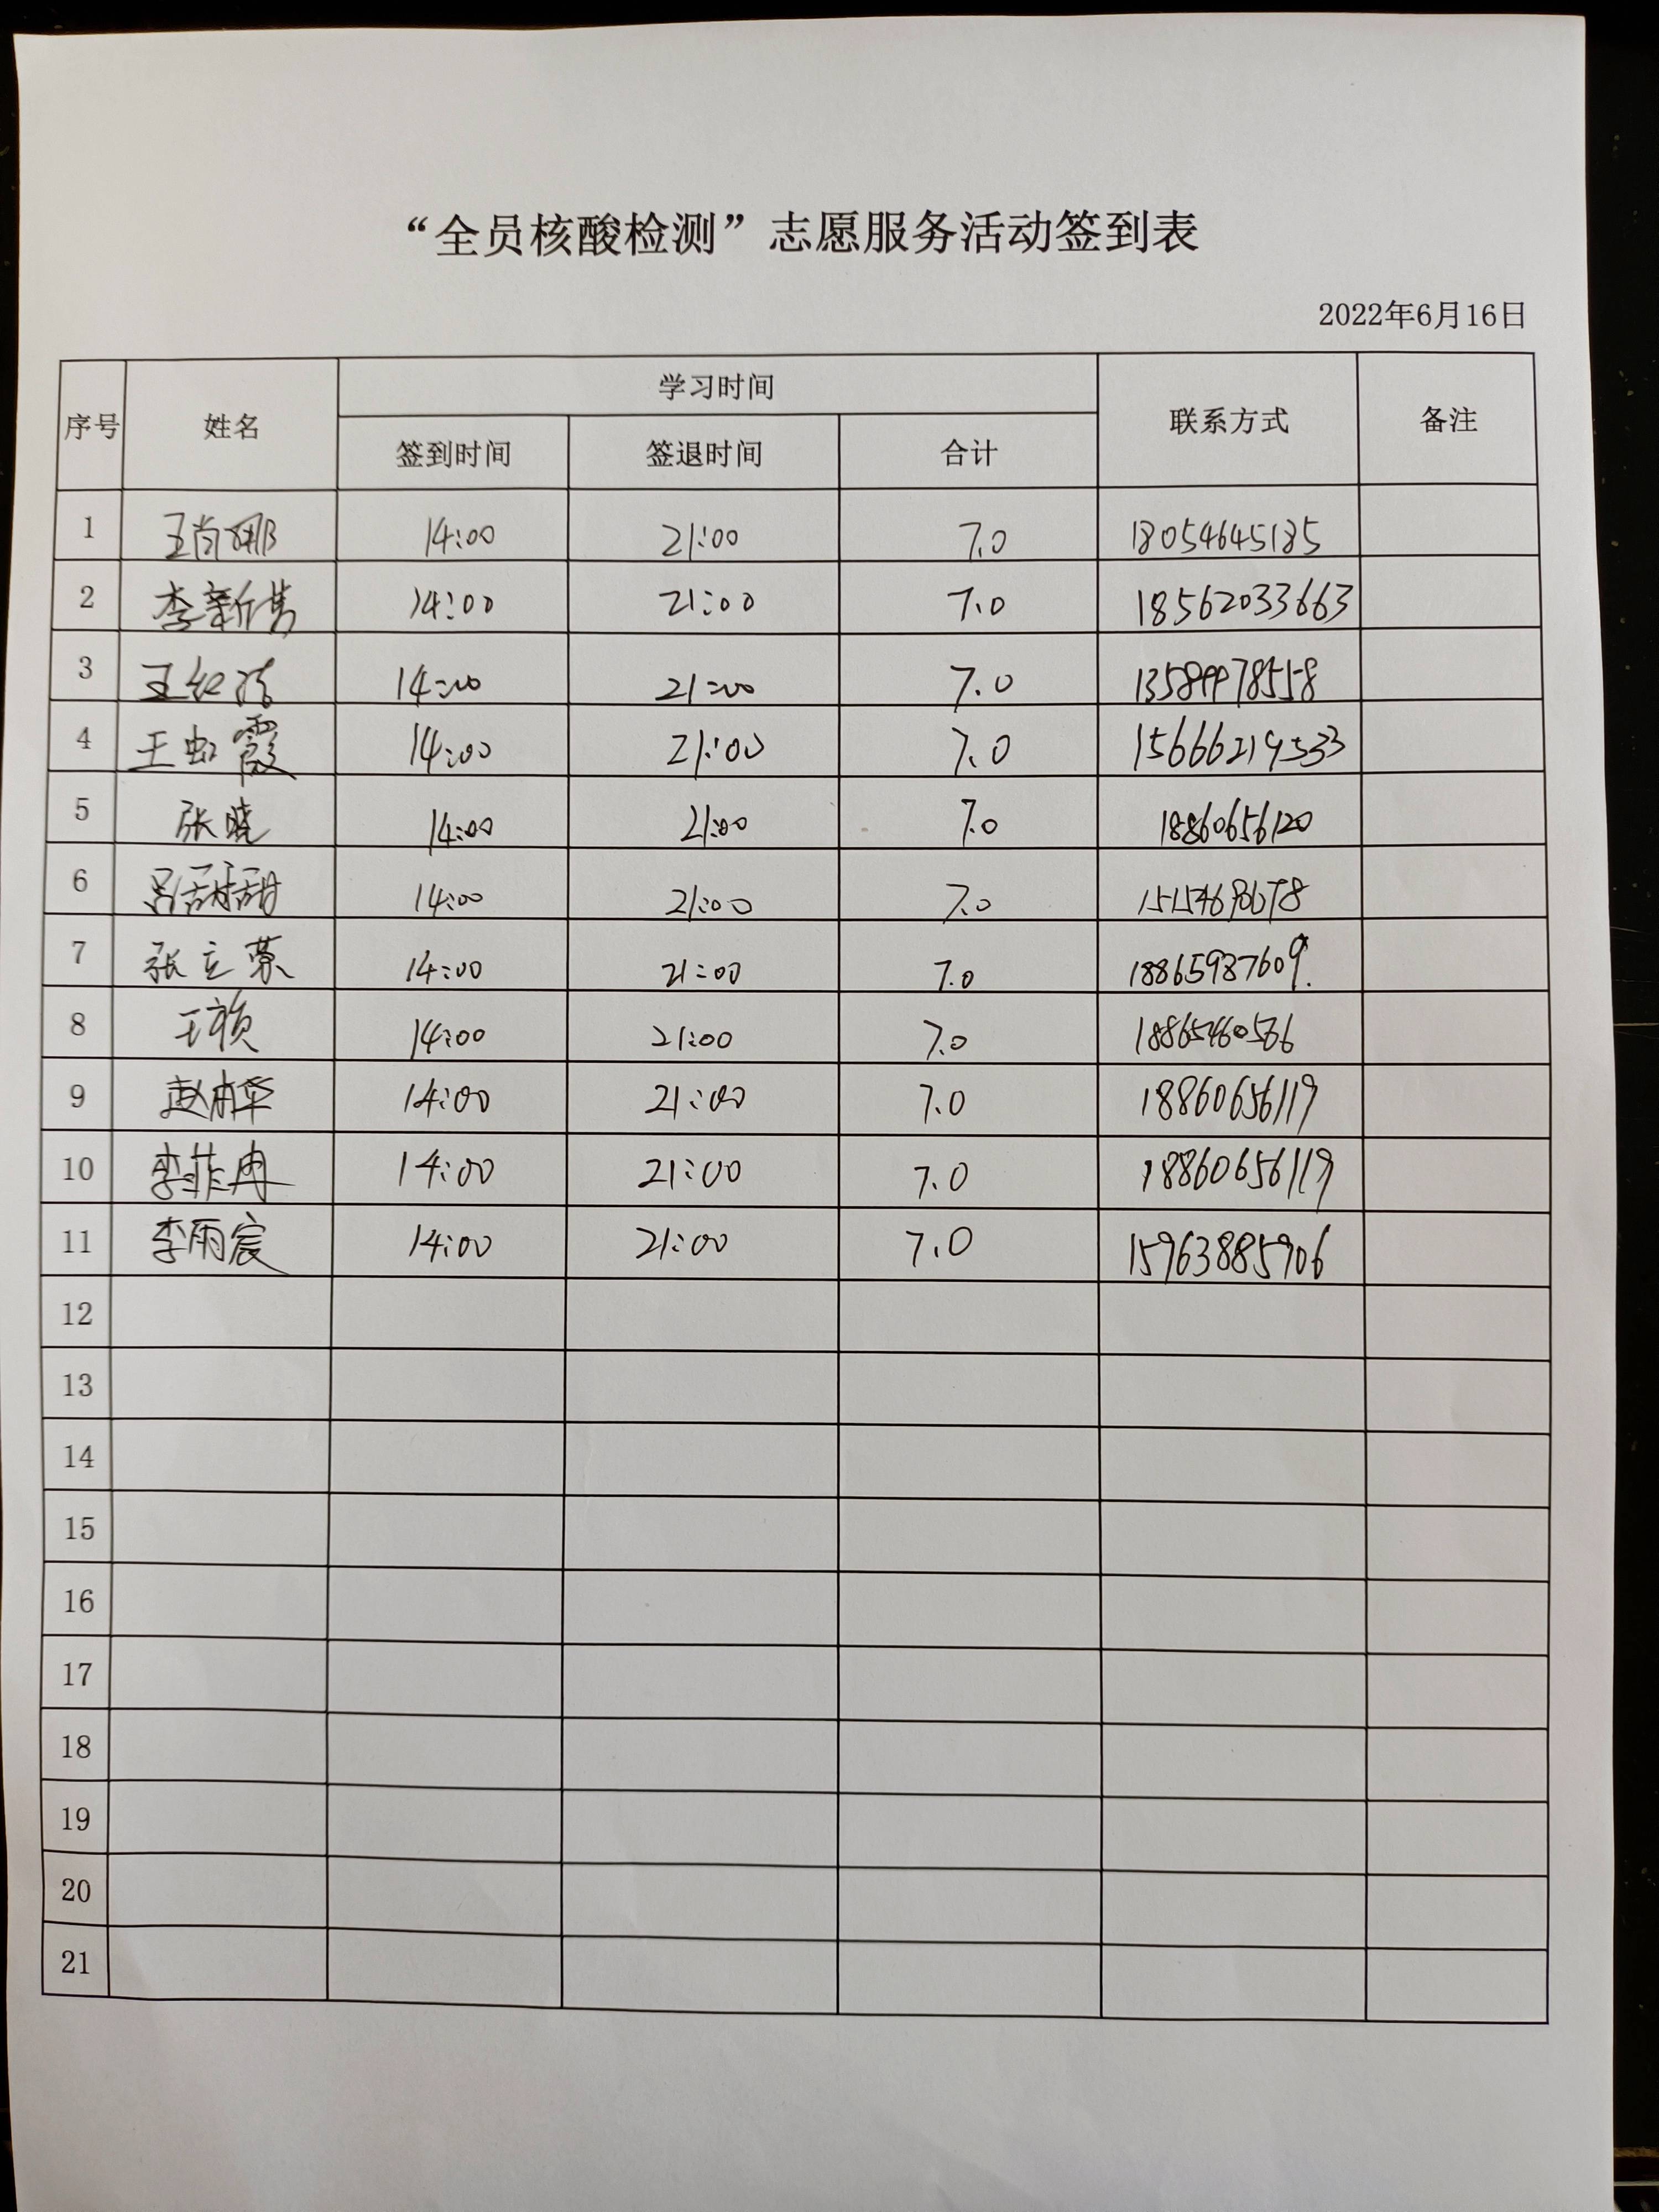 “全员核酸检测”志愿服务活动签到表
2022年6月16日
序号 姓名 学习时间 联系方式 备注
签到时间 签退时间 合计
1 王肖娜 14:00 21:00 7.0 18054645185
2 李新 14:00 21:00 7.0 18562033663
3 王红 14:00 21:00 7.0
4 王虹霞 14:00 21:00 7.0 15666219533
5 张晓 14:00 21:00 7.0 18860656120
6 吕甜甜 14:00 21:00 7.0
7 张立荣 14:00 21:00 7.0 18865987609.
8 王祯 14:00 21:00 7.0
9 赵 14:00 21:00 7.0 18860656119
10 李菲冉 14:00 21:00 7.0 18860656119
11 李雨宸 14:00 21:00 7.0 15963885906
12
13
14
15
16
17
18
19
20
21